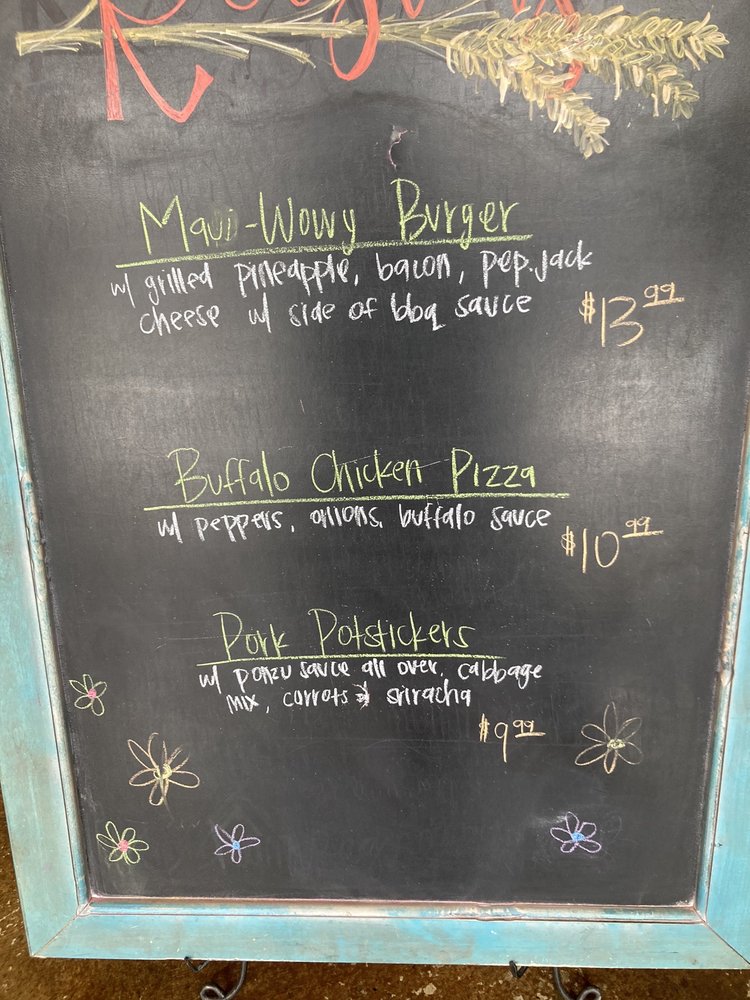 Maui-Wowy Burger
w/ grilled pineapple, bacon, pep.jack
cheese w/ side of bbq sauce
$13.99
Buffalo Chicken Pizza
w/ peppers, onions, buffalo sauce
$10.99
Pork Potstickers
w/ ponzu sauce all over, cabbage
mix, carrots & sriracha
$9.99